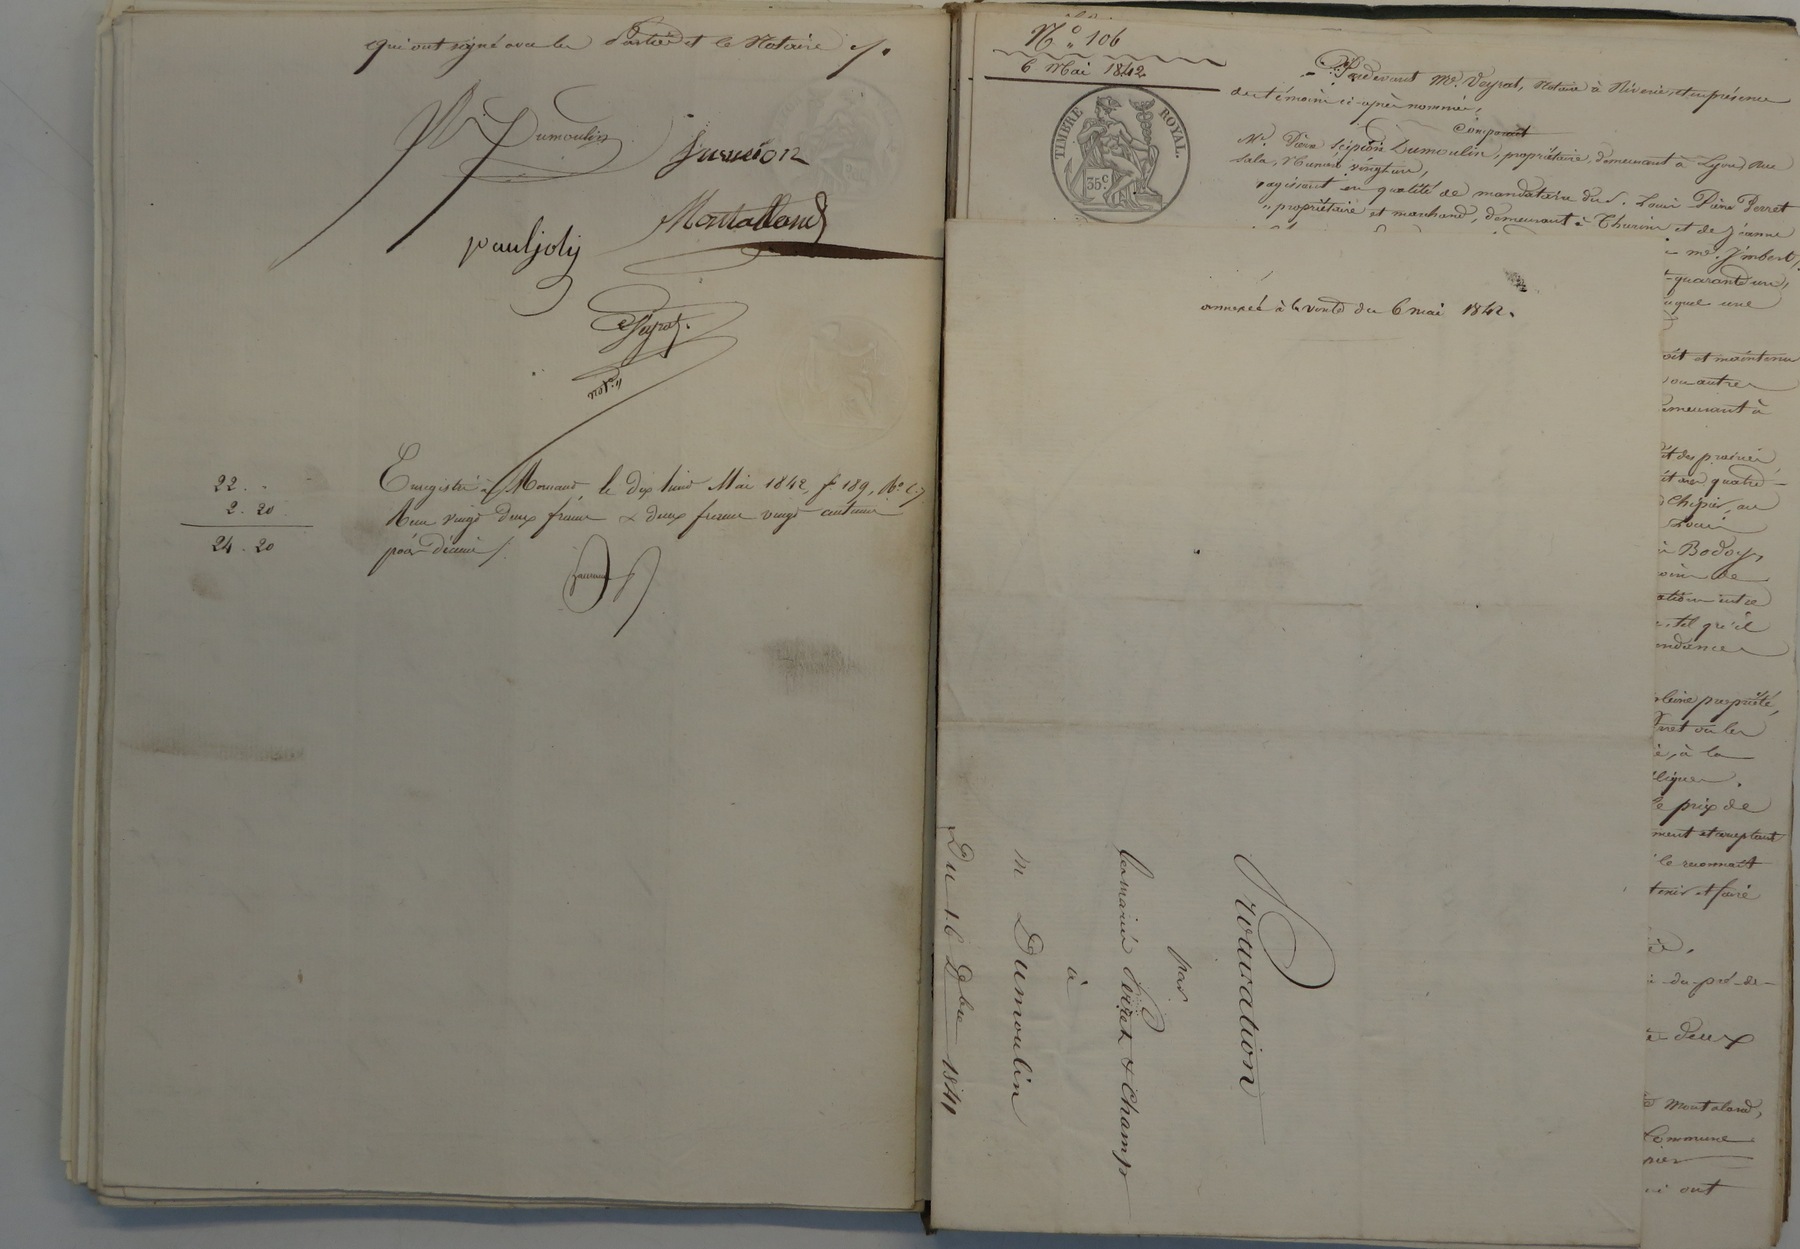 qui ont signé avec les Parties et le Notaire ./.
Dumoulin
Montalland
pauljoly
Veyrat.
not.re
22. -
2. 20
24. 20
Enregistré à Mornand, le dix huit Mai 1842, f.o 189,
Reçu vingt deux francs & deux francs vingt centimes
pour décime ./.
N.o 106
6 Mai 1842
TIMBRE ROYAL.
35 c.
Pardevant Me. Veyrat, Notaire à Riverie, et en présence
des témoins ci-après nommés,
Comparant
Mr. Pierre Scipion Dumoulin, propriétaire, demeurant à Lyon, Rue
Sala, Numéro vingt un,
agissant en qualité de mandataire du S. Louis Pierre Perret
propriétaire et marchand, demeurant à Thurins et de Jeanne
me. Jmbert
quarante un,
uquel une
oit et maintenu
ou autres
emeurant à
quatre-
Bodoy,
oins de
ation entre
, tel qu'il
endances
pleine propriété,
, à la
prix de
ment et acceptant
le reconnaît
tenir et faire
du-pré-de-
deux
Montaland,
Commune
ont
annexée à la vente du 6 mai 1842.
Procuration
par
les mariés Perret & Champ
à
Mr Dumoulin
Du 16 Xbre 1841